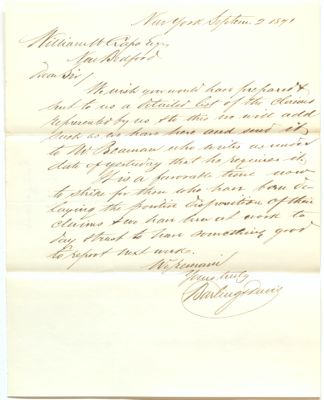 New York Septem. 2 1871
William W. Crapo Esq.
New Bedford
Dear Sir/
We wish you would have prepared &
sent to us a detailed list of the claims
represented by us & to this we will add
such as we have here and send it
to Mr Beaman who writes us under
date of yesterday that he requires it.
It is a favorable time now
to strike for those who have been de-
laying the positive disposition of their
claims & we have him at work to
day & trust to have something good
to report next week.
We remain
Yours truly